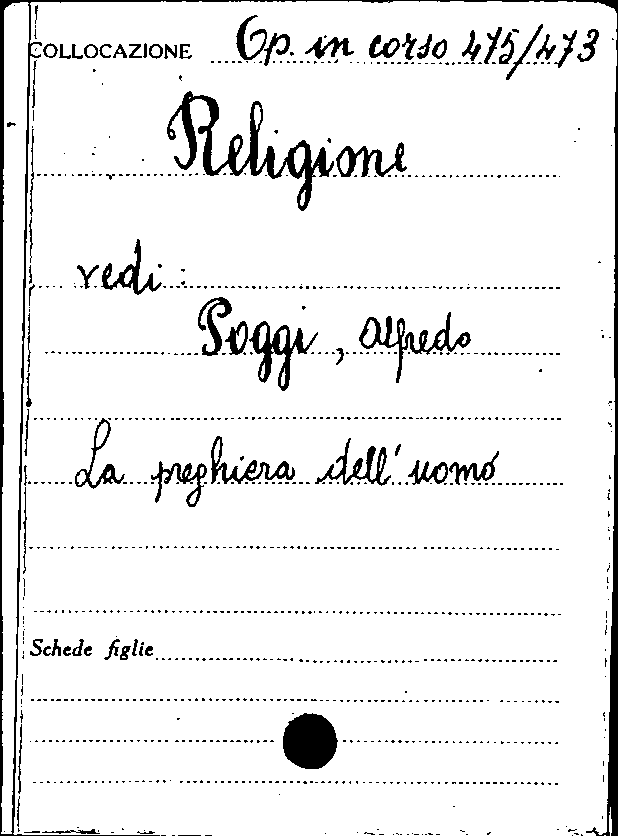 COLLOCAZIONE Op. in corso 475/473
Religione
vedi :
Poggi, Alfredo
La preghiera dell'uomo
Schede figlie